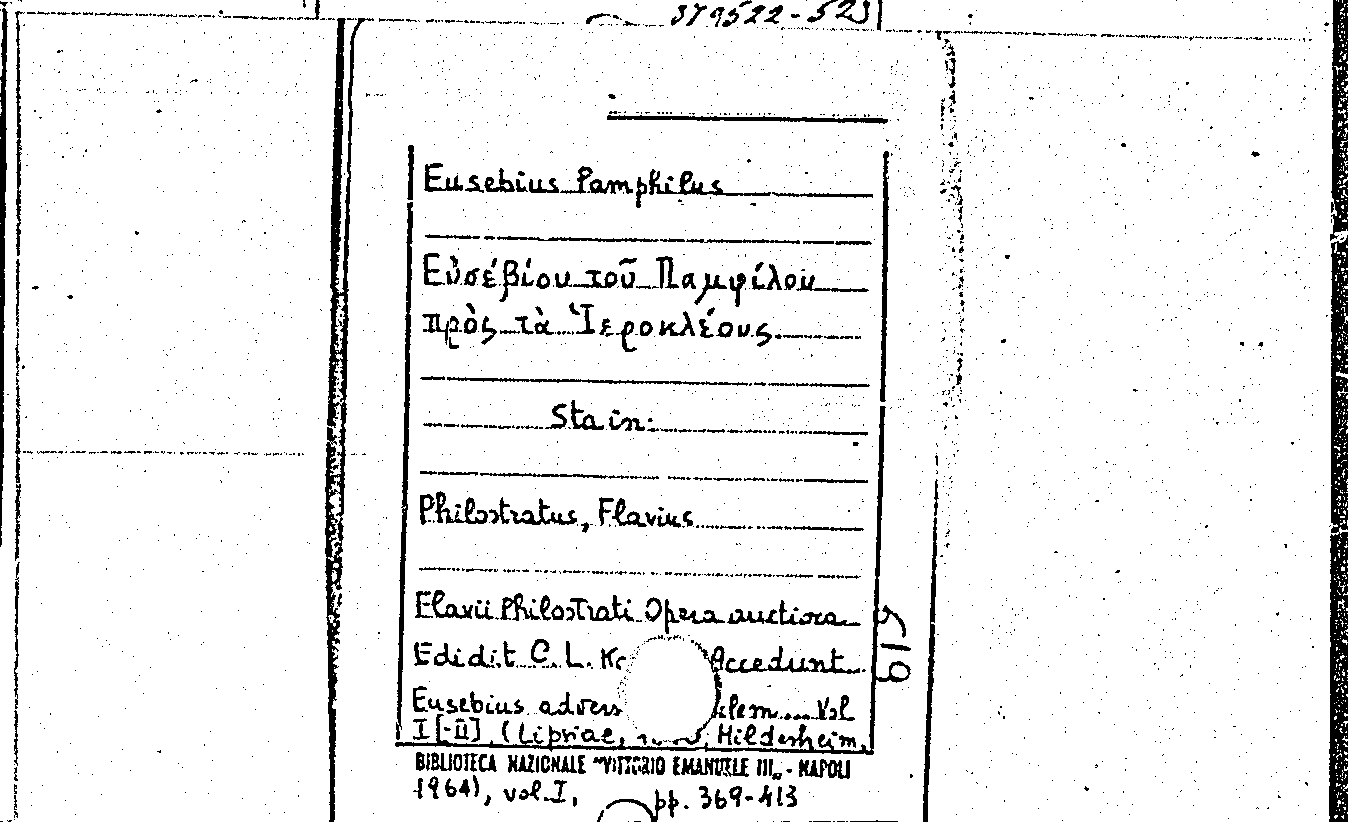 379522-523
Eusebius Pamphilus
Εὐσέβίου τοῦ Παμφίλου
πρὸς τὰ Ἱεροκλέους.
Sta in:
Philostratus, Flavius
Flavii Philostrati Opera auctiora
Edidit C. L. Accedunt
Eusebius Vol
I [-II] (Lipsiae, Hildesheim,
BIBLIOTECA NAZIONALE "VITTORIO EMANUELE III„ - NAPOLI
1964), vol. I, pp. 369-413
619